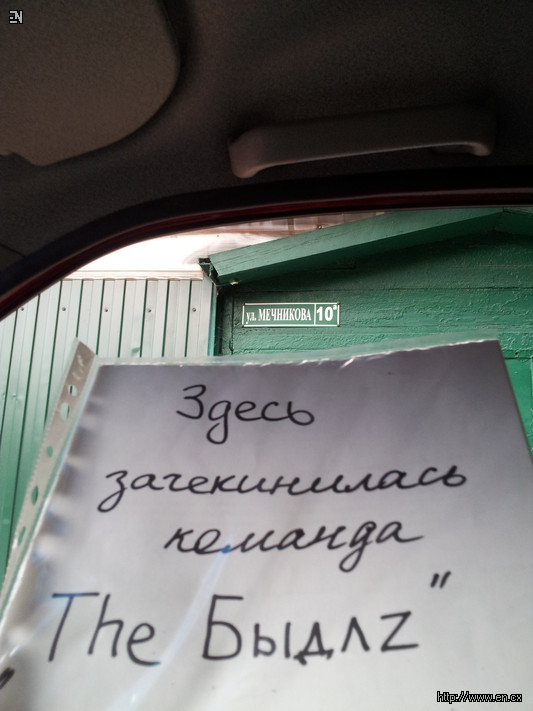 EN
ул. МЕЧНИКОВА 10а
Здесь
зачекинилась
команда
"The Быдлz"
http://www.en.cx